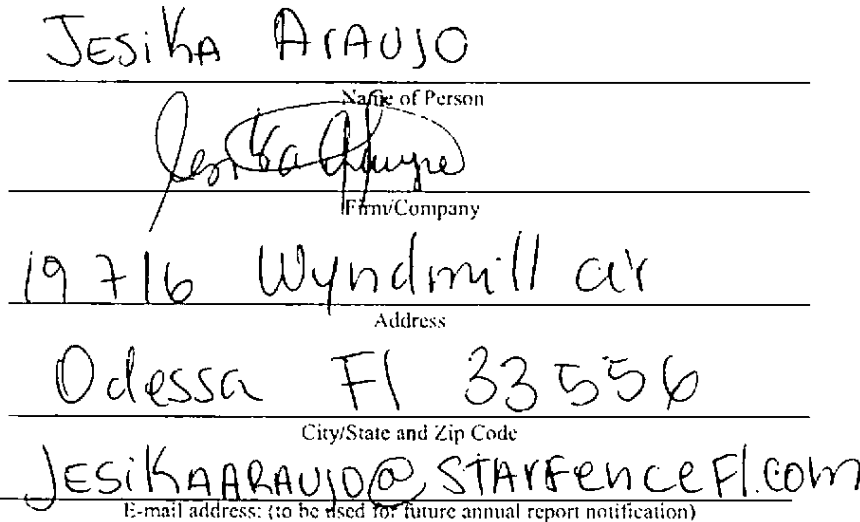 JESiKA ArAUJO
Name of Person
Jesika Araujo
Firm/Company
19716 Wyndmill cir
Address
Odessa Fl 33556
City/State and Zip Code
JESiKAARAUJO@STArFenceFl.com
E-mail address: (to be used for future annual report notification)